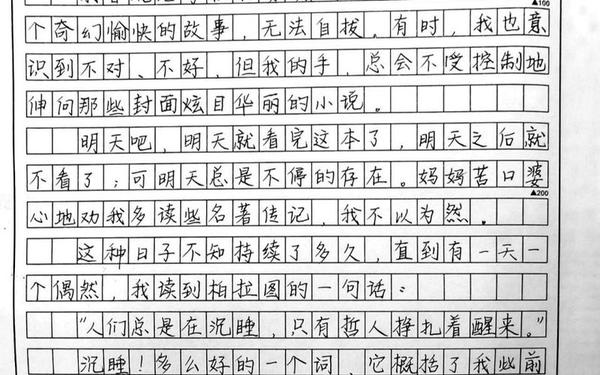 ▲100
个奇幻愉快的故事，无法自拔。有时，我也意
识到不对、不好，但我的手，总会不受控制地
伸向那些封面炫目华丽的小说。
明天吧，明天就看完这本了，明天之后就
不看了；可明天总是不停的存在。妈妈苦口婆
▲200
心地劝我多读些名著传记，我不以为然。
这种日子不知持续了多久，直到有一天一
个偶然，我读到柏拉图的一句话：
“人们总是在沉睡，只有哲人挣扎着醒来。”
沉睡！多么好的一个词，它概括了我些前